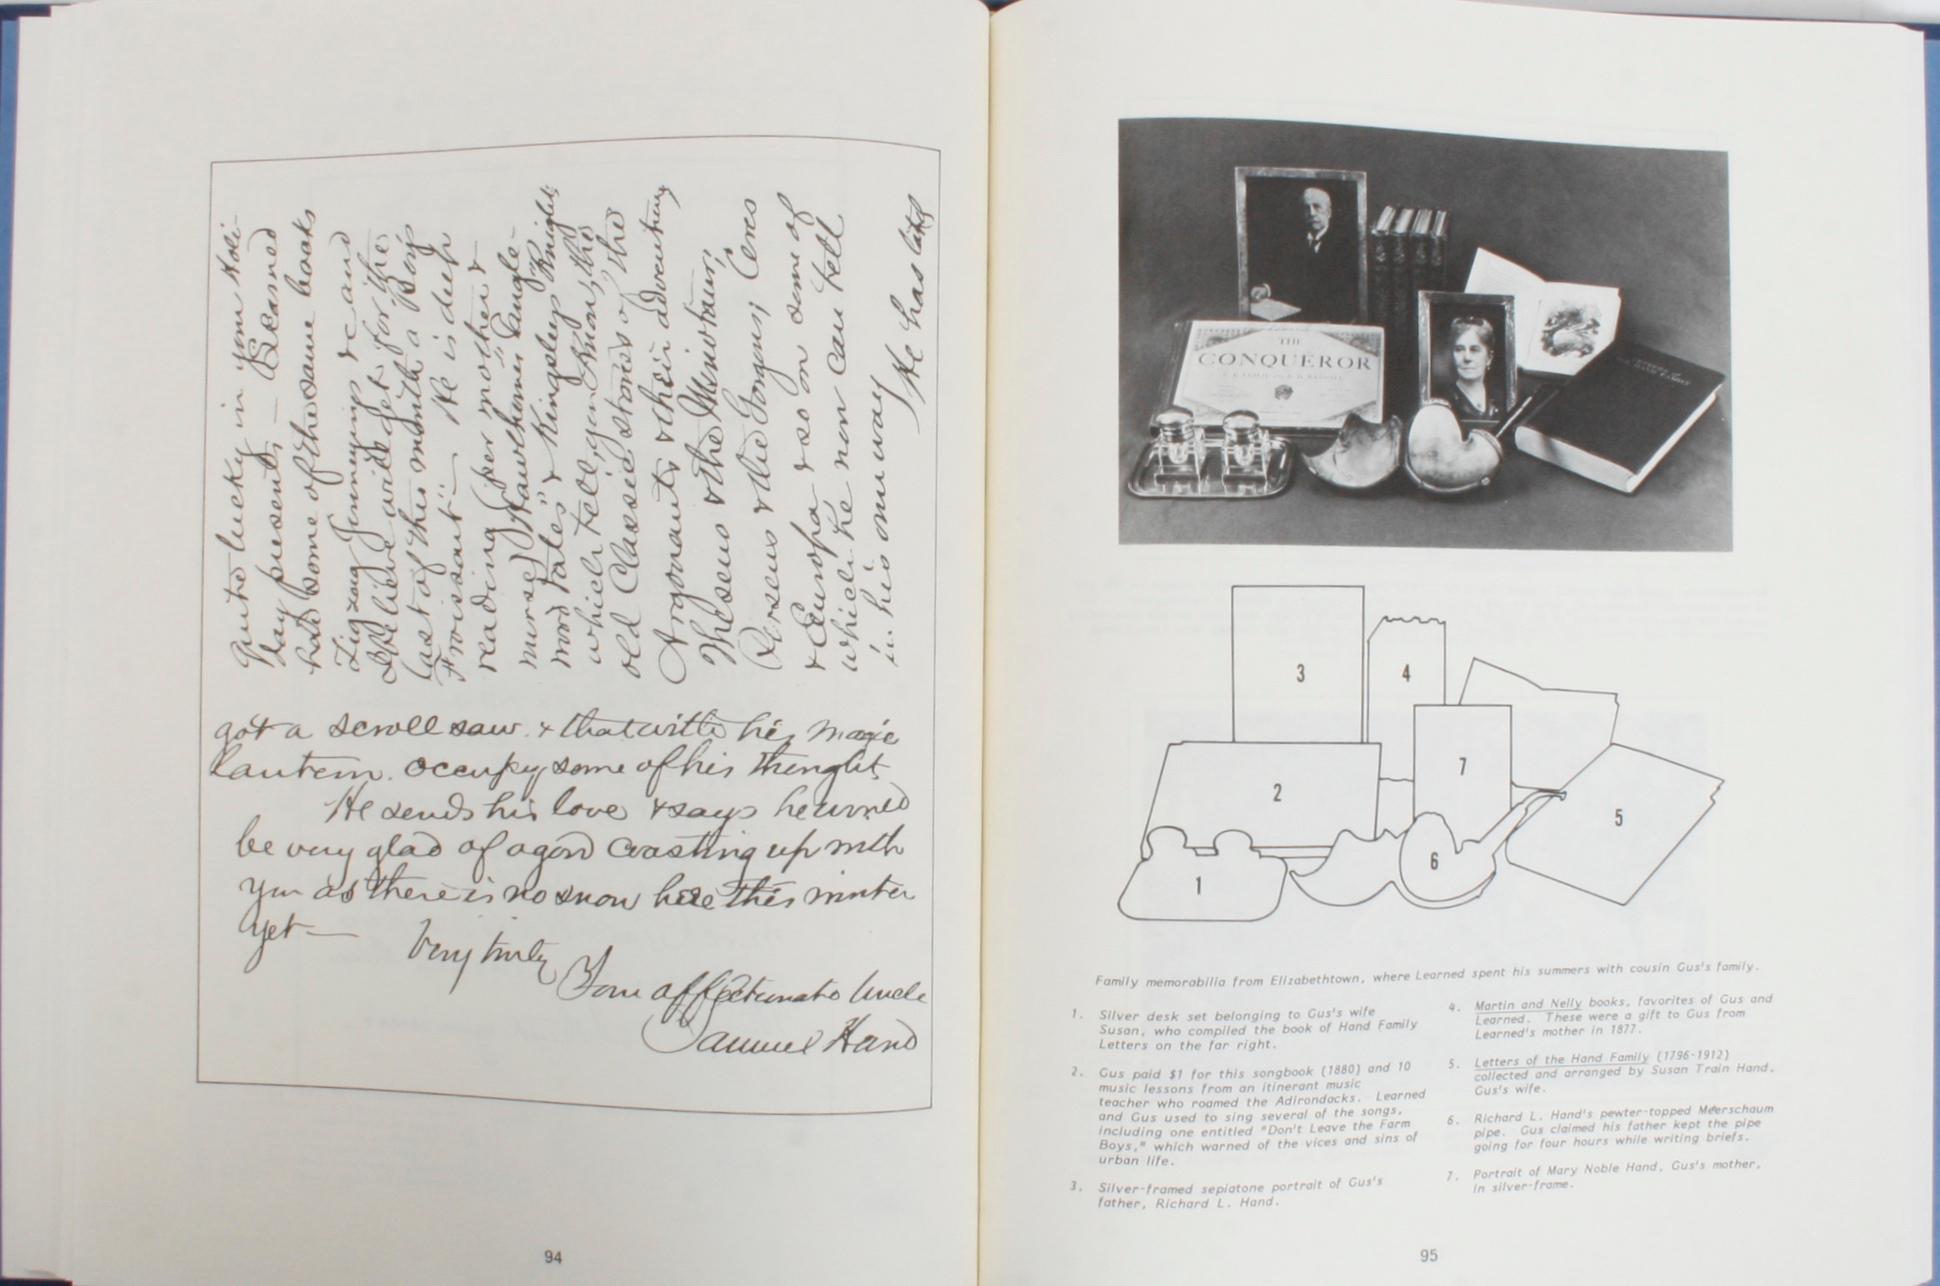 quite lucky in your Holi-
day presents — Leaned
had some of the same books
Zig zag Journeys &c and
I believe will get for the
last of this month a "Boy's
Froissart" — He is deep
reading (per mother &
nurse) "Hawthornes Tangle-
wood Tales" & Kingsleys Knights
which tell, you know, the
old Classic stories of the
Argonauts & their adventures
Theseus & the Minotaur;
Perseus & the Gorgons; Ceres
& Europa & so on some of
which he now can tell
in his own way / He has lately
got a scroll saw & that with his magic
lantern occupy some of his thought.
He sends his love & says he would
be very glad of a good coasting up with
you as there is no snow here this winter
yet—
Very truly
Your affectionate Uncle
Samuel Hand
94
THE
CONQUEROR
3
4
2
7
5
1
6
Family memorabilia from Elizabethtown, where Learned spent his summers with cousin Gus's family.
1. Silver desk set belonging to Gus's wife
Susan, who compiled the book of Hand Family
Letters on the far right.
2. Gus paid $1 for this songbook (1880) and 10
music lessons from an itinerant music
teacher who roamed the Adirondacks. Learned
and Gus used to sing several of the songs,
including one entitled "Don't Leave the Farm
Boys," which warned of the vices and sins of
urban life.
3. Silver-framed sepiatone portrait of Gus's
father, Richard L. Hand.
4. Martin and Nelly books, favorites of Gus and
Learned. These were a gift to Gus from
Learned's mother in 1877.
5. Letters of the Hand Family (1796-1912)
collected and arranged by Susan Train Hand,
Gus's wife.
6. Richard L. Hand's pewter-topped Meerschaum
pipe. Gus claimed his father kept the pipe
going for four hours while writing briefs.
7. Portrait of Mary Noble Hand, Gus's mother,
in silver-frame.
95